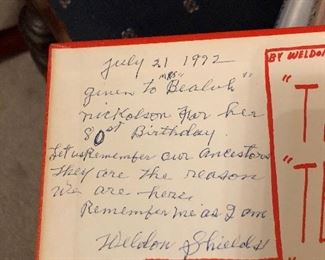 July 21 1992
"MRS"
given to Bealuh"
nickolson for her
80st Birthday.
Let us Remember our Ancestors
They are the reason
we are here.
Remember me as I am
Weldon Shields
BY WELDON
"T
"T